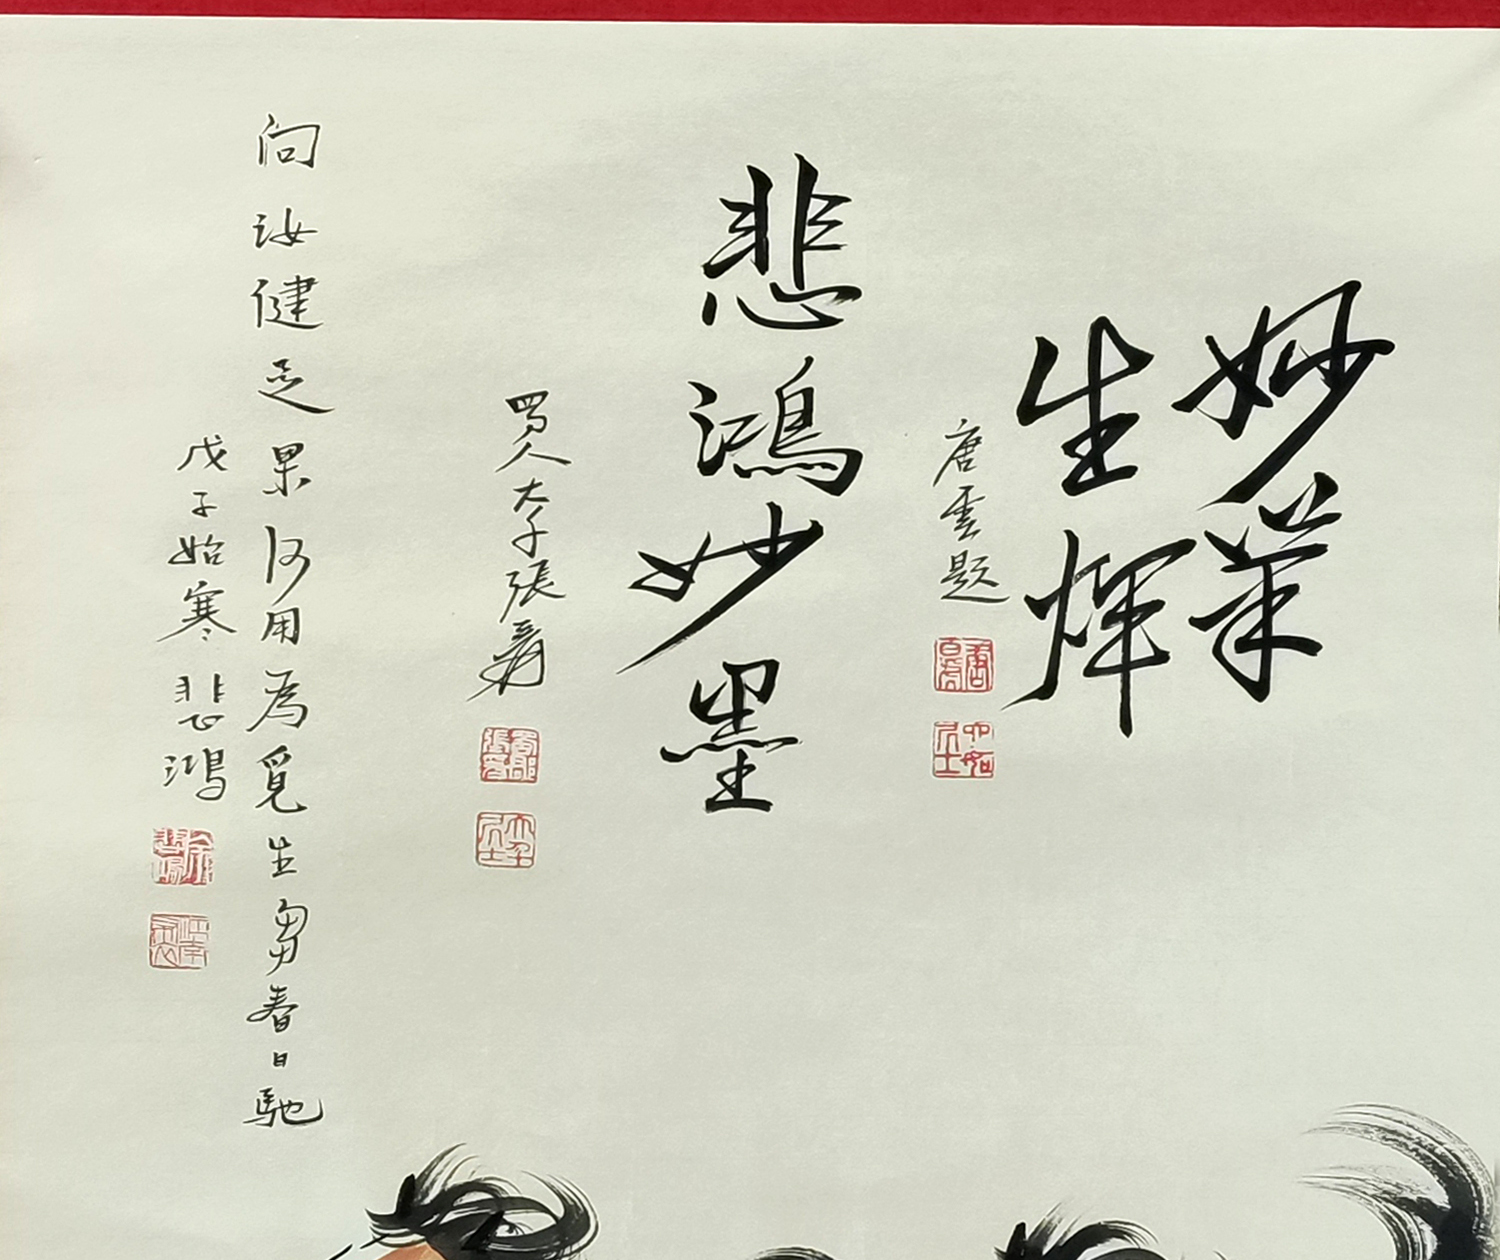 妙筆
生輝
唐雲題
悲鴻妙墨
蜀人大千張爰
問汝健足果何用為覓生芻春日馳
戊子始寒悲鴻